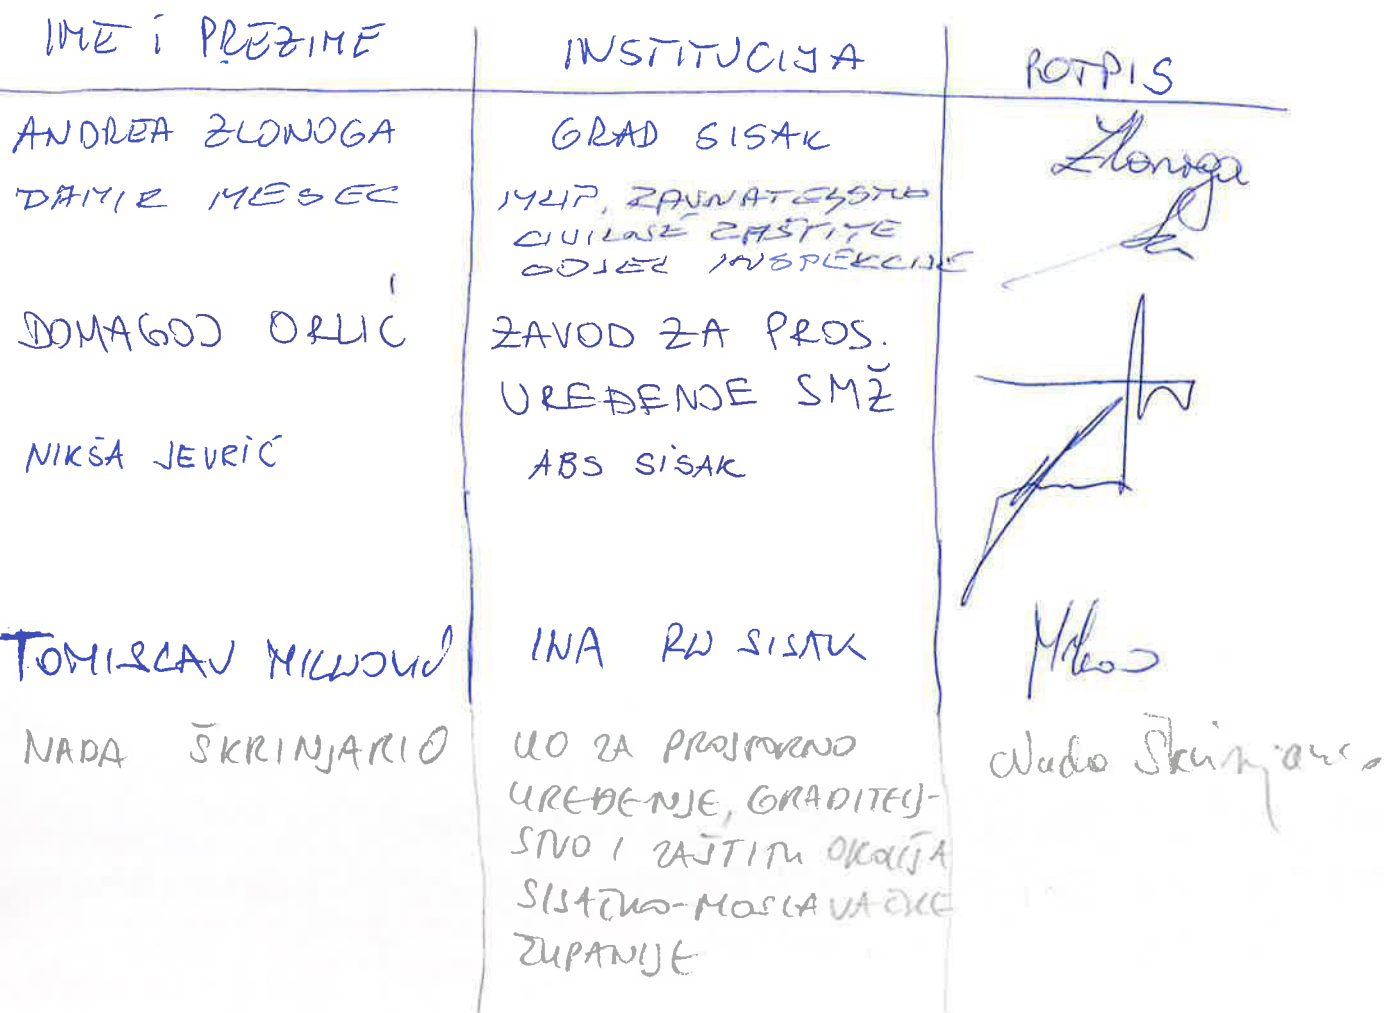 IME i PREZIME INSTITUCIJA POTPIS
ANDREA ZLONOGA GRAD SISAK Zlonoga
DAMIR MESEC MUP, RAVNATELJSTVO
CIVILNE ZAŠTITE
ODJEL INSPEKCIJE
DOMAGOJ ORLIĆ ZAVOD ZA PROS.
UREĐENJE SMŽ
NIKŠA JEVRIĆ ABS SISAK
TOMISLAV INA RN SISAK
NADA ŠKRINJARIĆ UO ZA PROSTORNO Nada Škrinjarić
UREĐENJE, GRADITELJ-
STVO I ZAŠTITU OKOLIŠA
SISAČKO-MOSLAVAČKE
ŽUPANIJE